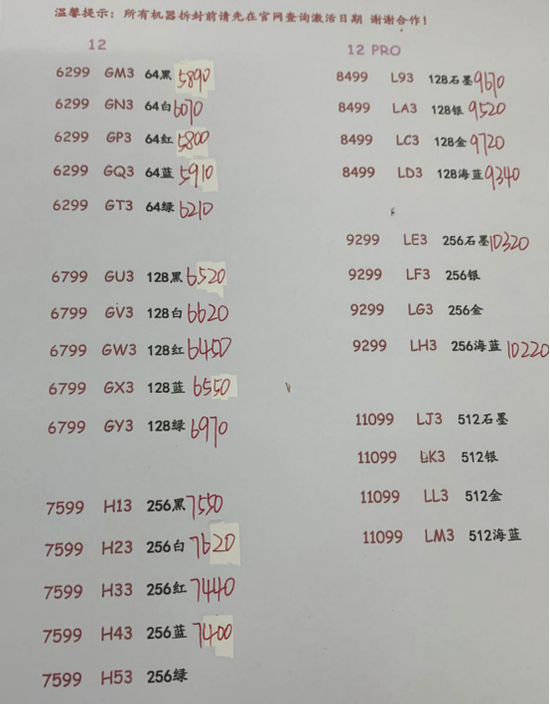 温馨提示: 所有机器拆封前请先在官网查询激活日期 谢谢合作!
12
6299 GM3 64黑 5890
6299 GN3 64白 6070
6299 GP3 64红 5800
6299 GQ3 64蓝 5910
6299 GT3 64绿 6210
6799 GU3 128黑 6520
6799 GV3 128白 6620
6799 GW3 128红 6450
6799 GX3 128蓝 6550
6799 GY3 128绿 6970
7599 H13 256黑 7550
7599 H23 256白 7620
7599 H33 256红 7440
7599 H43 256蓝 7400
7599 H53 256绿
12 PRO
8499 L93 128石墨 9670
8499 LA3 128银 9520
8499 LC3 128金 9720
8499 LD3 128海蓝 9340
9299 LE3 256石墨 10320
9299 LF3 256银
9299 LG3 256金
9299 LH3 256海蓝 10220
11099 LJ3 512石墨
11099 LK3 512银
11099 LL3 512金
11099 LM3 512海蓝